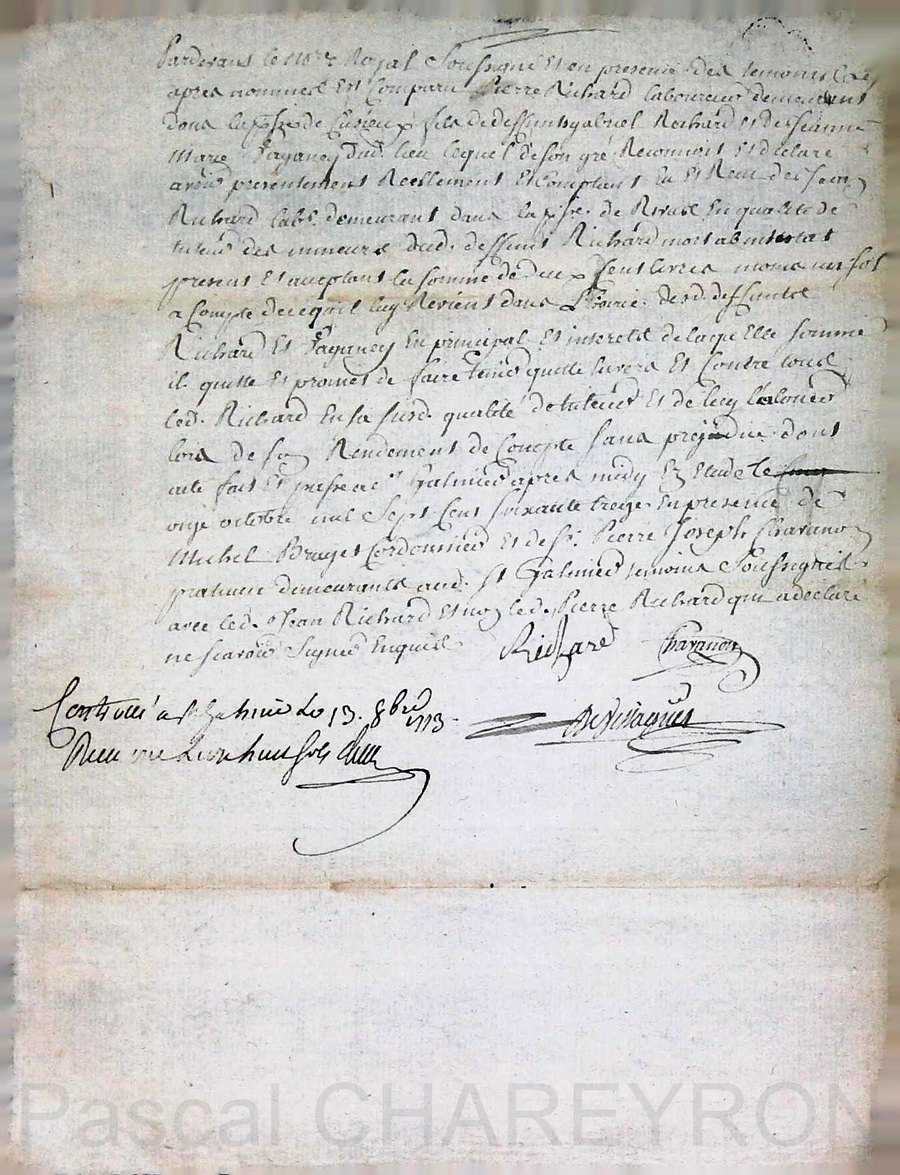 Pardevant le No.re Royal Soussigné et en presence des temoins cy
apres nommés est comparu Pierre Richard laboureur demeurant
dans la psse de Cuzieux fils de deffunts gabriel Richard et de Jeanne
Marie Paganey dud. lieu lequel de son gré Reconnoit et declare
avoir presentement Reellement et comptant eu et Receu de Jean
Richard labr. demeurant dans la psse de Rivas en qualité de
tuteur des mineurs dud. deffunt Richard mort abintestat
present et acceptant la somme de deux Cent livres moins un sol
a Compte de ce qu'il luy Revient dans l'hoirie desd. deffuntes
Richard et Paganey en principal et interets de laquelle somme
il quitte et promet de faire tenir quitte envers et Contre tous
led. Richard en sa susd. qualité de tuteur et de luy l'alouer
lors de son Rendement de Compte sans prejudice dont
acte fait et passé a St. Galmier apres midy en etude le
onze octobre mil Sept Cent soixante treize en presence de
Michel Bruyet Cordonnier et de Sr. Pierre Joseph Chavanon
praticien demeurants aud. St Galmier temoins Soussignés
avec led. Jean Richard et non led. Pierre Richard qui a declaré
ne scavoir signer Enquis
Richard Chavanon
Controllé a St Galmier le 13. 8bre 1773.
Receu vingt huit sols
Pascal CHAREYRON